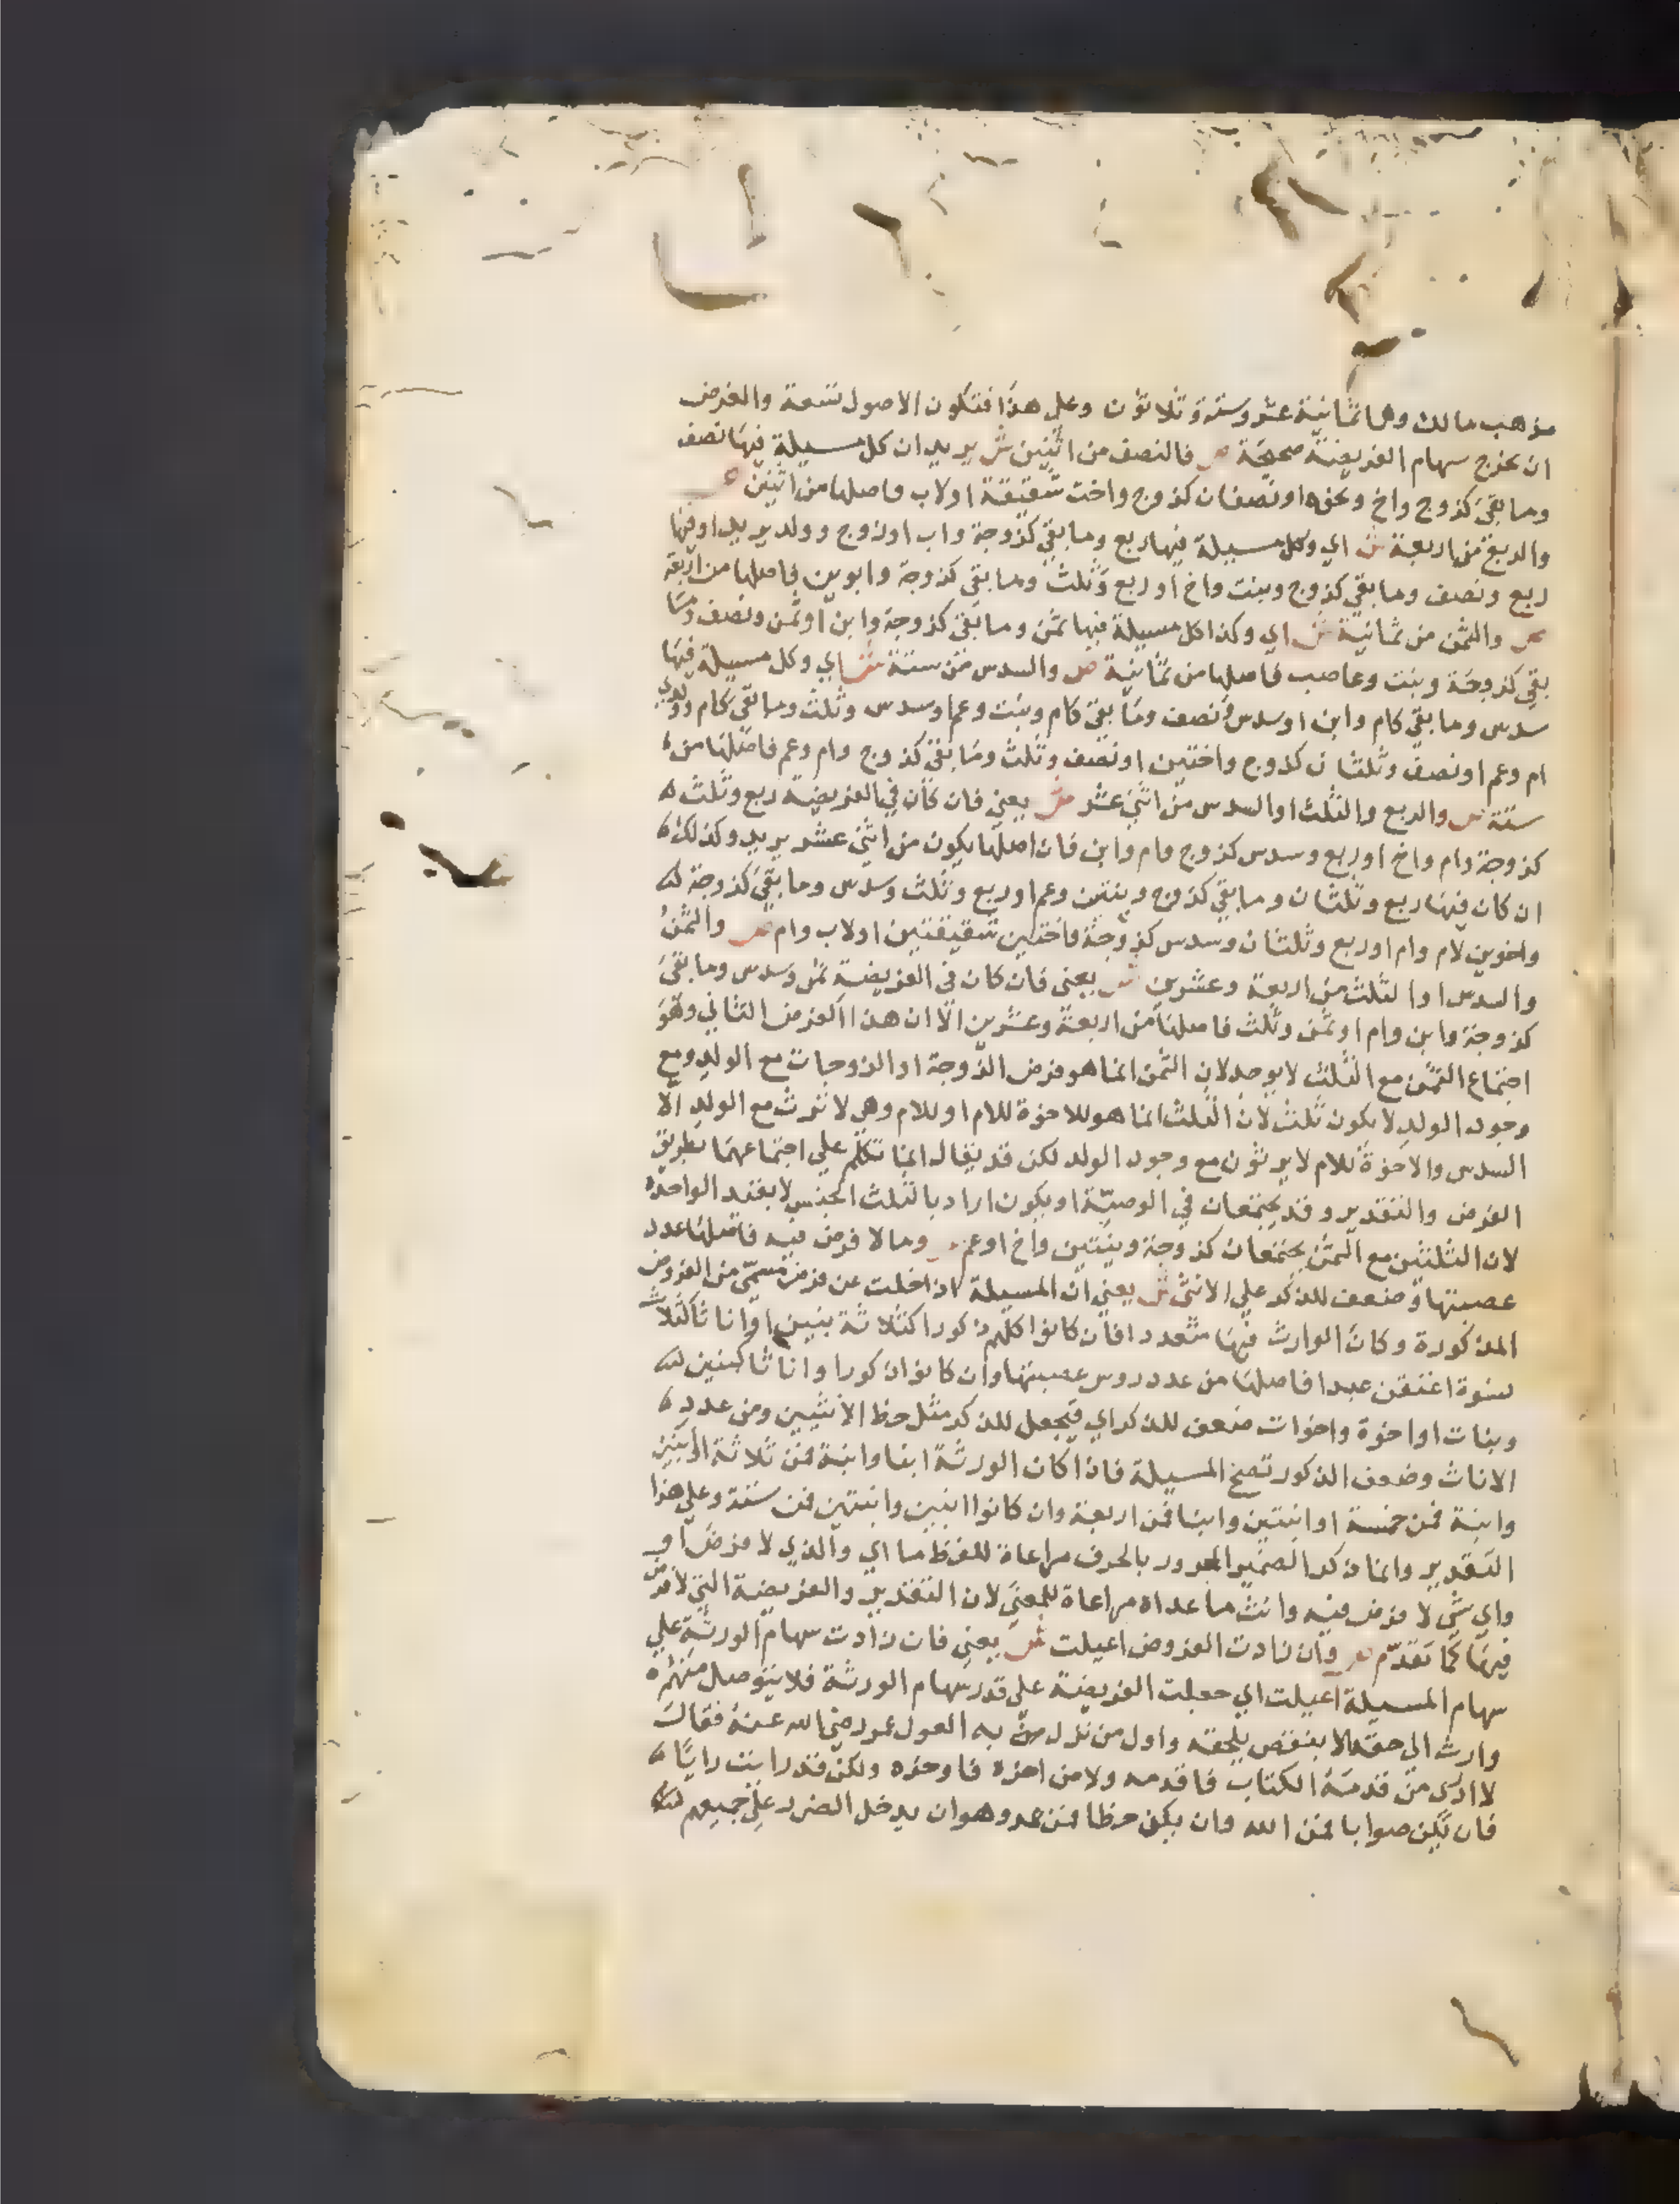 مذهب مالك وهما ثمانية عشر وستة وثلاثون وعلى هذا فتكون الاصول تسعة والغرض
ان تخرج سهام الفريضة صحيحة ص فالنصف من اثنين ش يريد ان كل مسيلة فيها نصف
وما بقي كزوج واخ ونحوه او نصفان كزوج واخت شقيقة او لاب فاصلها من اثنين ص
والربع من اربعة ش اي وكل مسيلة فيها ربع وما بقي كزوجة واب او زوج وولد يريد او فيها
ربع ونصف وما بقي كزوج وبنت واخ او ربع وثلث وما بقي كزوجة وابوين فاصلها من اربعة
ص والثمن من ثمانية ش اي وكذا كل مسيلة فيها ثمن وما بقي كزوجة وابن او ثمن ونصف وما
بقي كزوجة وبنت وعاصب فاصلها من ثمانية ص والسدس من ستة ش اي وكل مسيلة فيها
سدس وما بقي كام وابن او سدس ونصف وما بقي كام وبنت وعم او سدس وثلث وما بقي كام وولدي
ام وعم او نصف وثلثان كزوج واختين او نصف وثلث وما بقي كزوج وام وعم فاصلها من
ستة ص والربع والثلث او السدس من اثني عشر ش يعني فان كان في الفريضة ربع وثلث
كزوجة وام واخ او ربع وسدس كزوج وام وابن فان اصلها يكون من اثني عشر يريد وكذلك
ان كان فيها ربع وثلثان وما بقي كزوج وبنتين وعم او ربع وثلث وسدس وما بقي كزوجة
واخوين لام وام او ربع وثلثان وسدس كزوجة واختين شقيقتين او لاب وام ص والثمن
والسدس او الثلث من اربعة وعشرين ش يعني فان كان في الفريضة ثمن وسدس وما بقي
كزوجة وابن وام او ثمن وثلث فاصلها من اربعة وعشرين الا ان هذا الفرض الثاني وهو
اجتماع الثمن مع الثلث لا يوجد لان الثمن انما هو فرض الزوجة او الزوجات مع الولد ومع
وجود الولد لا يكون ثلث لان الثلث انما هو للاخوة للام او للام وهي لا ترث مع الولد الا
السدس والاخوة للام لا يرثون مع وجود الولد لكن قد يقال انما تكلم علي اجتماعهما بطريق
الفرض والتقدير وقد يجتمعان في الوصية او يكون اراد بالثلث الجنس لا بقيد الواحدة
لان الثلثين مع الثمن يجتمعان كزوجة وبنتين واخ او عم ص وما لا فرض فيه فاصلها عدد
عصبتها وضعف للذكر علي الانثى ش يعني ان المسيلة اذا خلت عن فرض مسمى من الفروض
المذكورة وكان الوارث فيها متعددا فان كانوا كلهم ذكورا كثلاثة بنين او اناثا كثلاث
نسوة اعتقن عبدا فاصلها من عدد روس عصبتها وان كانوا ذكورا واناثا كبنين
وبنات او اخوة واخوات ضعف للذكر اي فيجعل للذكر مثل حظ الانثيين ومن عدد
الاناث وضعف الذكور تصح المسيلة فاذا كان الورثة ابنا وابنة فمن ثلاثة او ابنين
وابنة فمن خمسة او ابنتين وابنا فمن اربعة وان كانوا ابنين وابنتين فمن ستة وعلي هذا
التقدير وانما ذكر الضمير المجرور بالحرف مراعاة للفظ ما اي والذي لا فرض او
واي شي لا فرض فيه وانث ما عداه مراعاة للمعنى لان التقدير والفريضة التي لا فرض
فيها كما تقدم ص وان زادت الفروض اعيلت ش يعني فان زادت سهام الورثة علي
سهام المسيلة اعيلت اي جعلت الفريضة على قدر سهام الورثة فلا يتوصل منهم
وارث الي حقه الا بنقص يلحقه واول من نزل به العول عمر رضي الله عنه فقال
لا ادري من قدمه الكتاب فاقدمه ولا من اخره فاوخره ولكن قد رايت رايا
فان يكن صوابا فمن الله وان يكن خطا فمن عمر وهو ان يدخل الضرر علي جميعهم